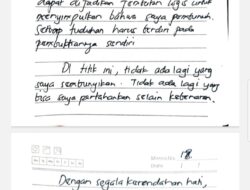 dapat dijadikan jembatan logis untuk
menyimpulkan bahwa saya pembunuh.
Setiap tuduhan harus berdiri pada
pembuktiannya sendiri
Di titik ini, tidak ada lagi yang
saya sembunyikan. Tidak ada lagi yang
bisa saya pertahankan selain kebenaran.
18
Date
Dengan segala kerendahan hati,